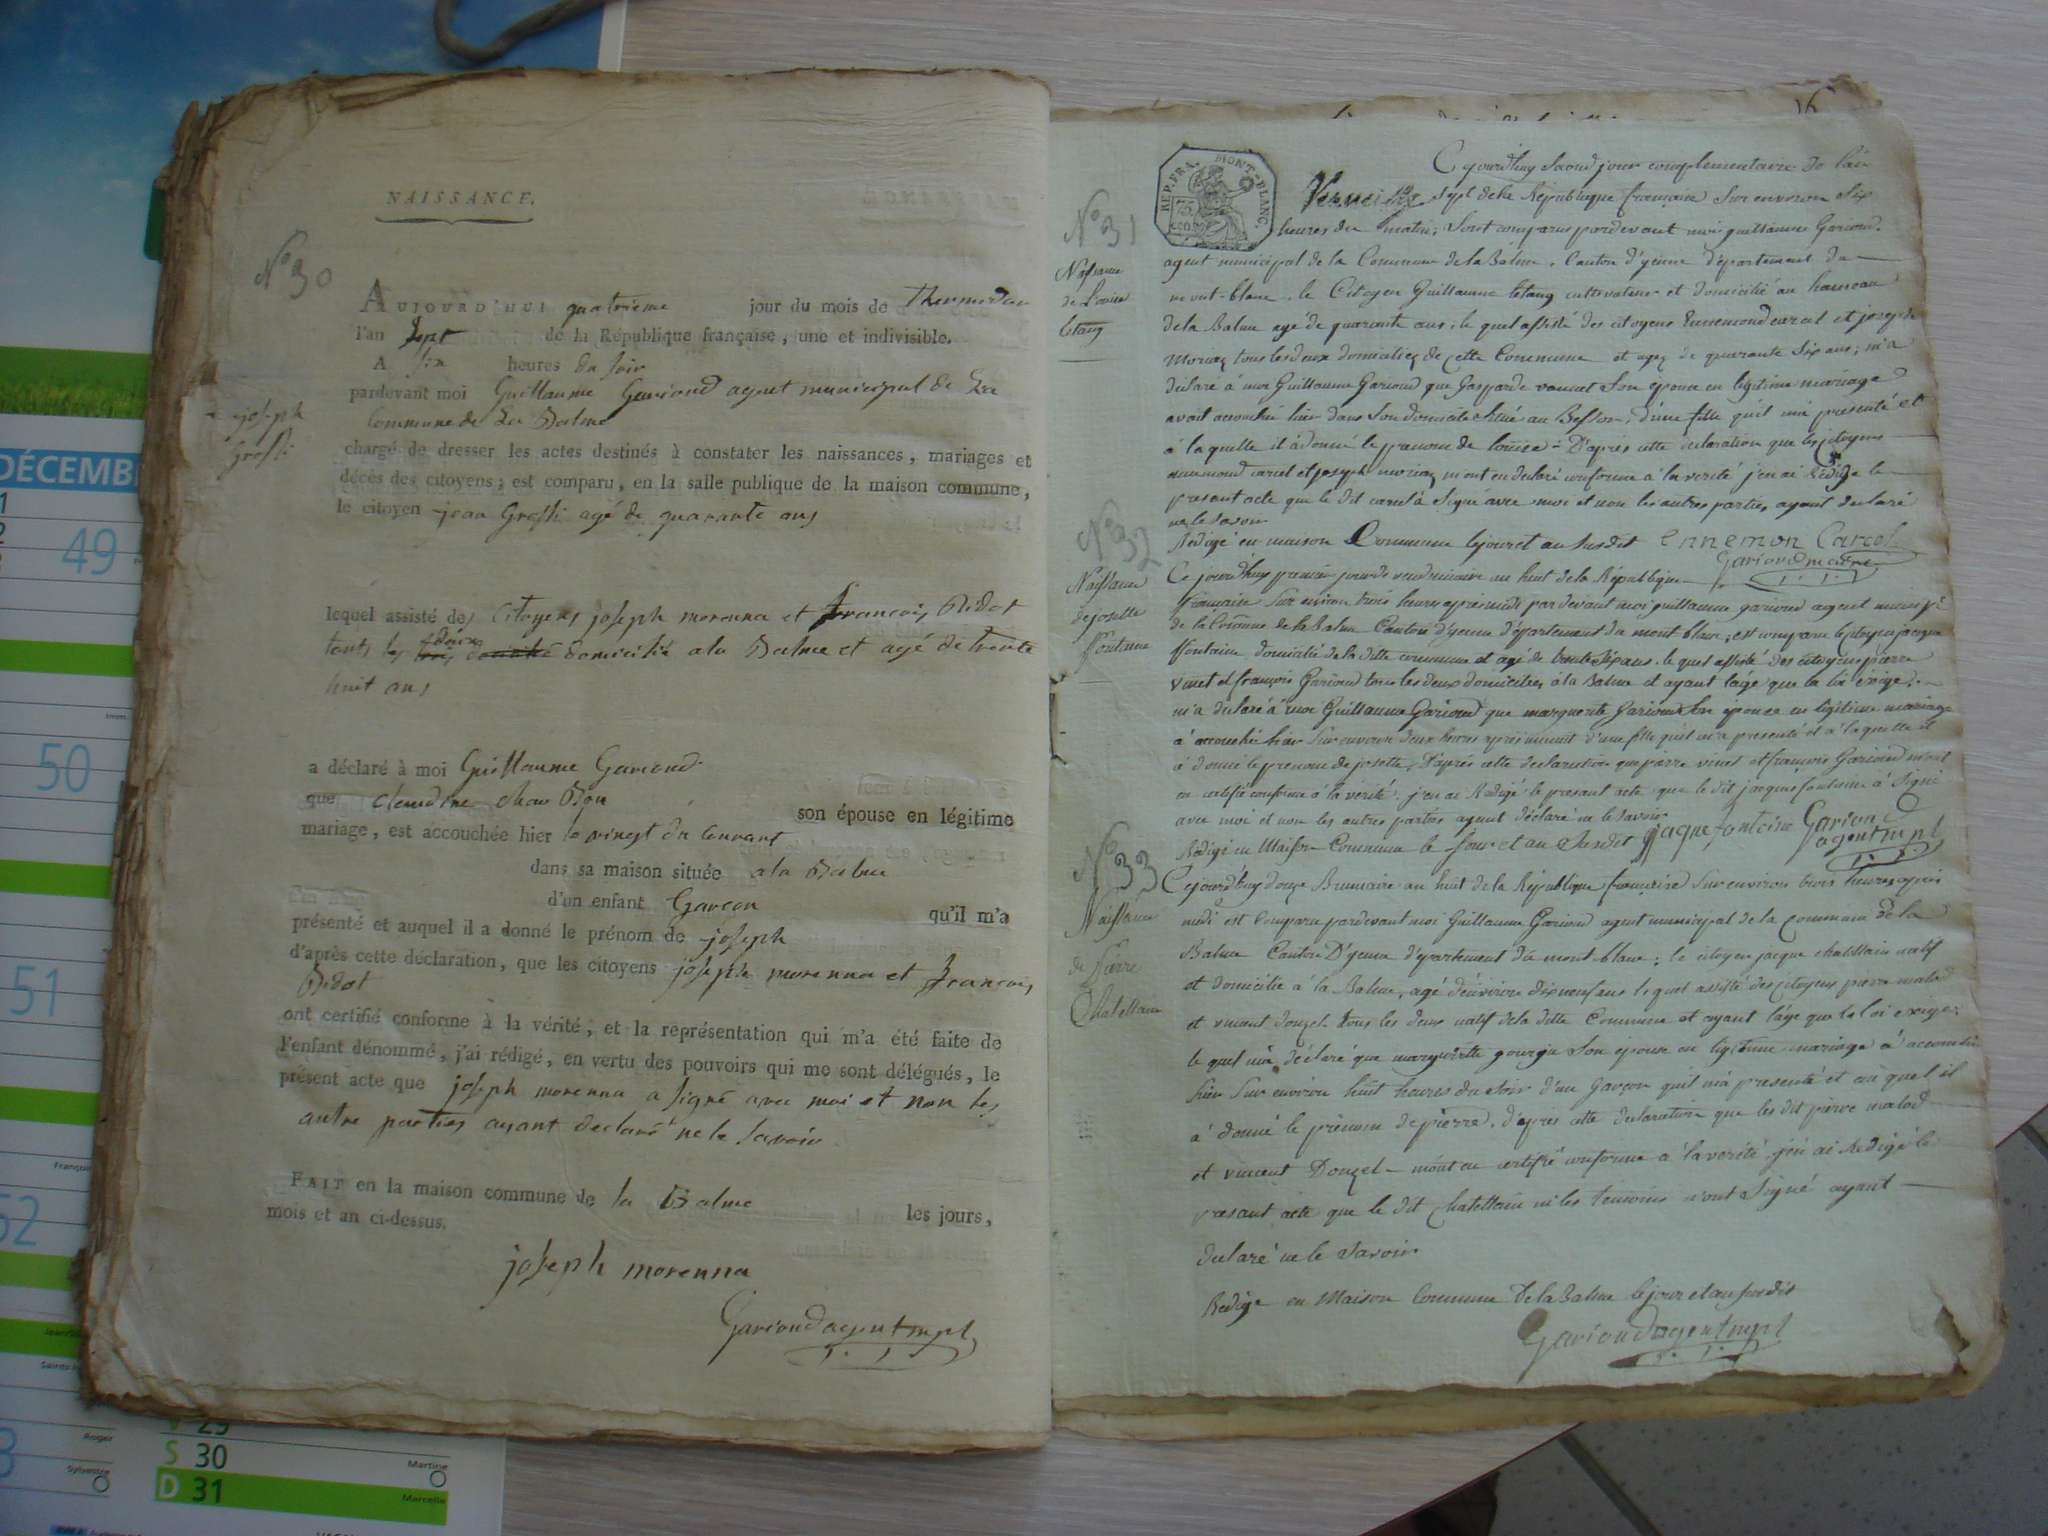 NAISSANCE.
N° 30
AUJOURD'HUI quatrieme jour du mois de Thermidor
l'an Sept de la République française, une et indivisible.
A six heures du soir
pardevant moi Guillaume Gariond agent municipal de La
Commune de La Balme
joseph
Grossi
chargé de dresser les actes destinés à constater les naissances, mariages et
décès des citoyens; est comparu, en la salle publique de la maison commune,
le citoyen jean Grossi agé de quarante ans
lequel assisté des Citoyens joseph morenna et francois Bidot
touts les deux domicilié a la Balme et agé de trente
huit ans
a déclaré à moi Guillaume Gariond
que claudine son épouse en légitime
mariage, est accouchée hier le vingt du Courant
dans sa maison située a la Balme
d'un enfant Garçon qu'il m'a
présenté et auquel il a donné le prénom de joseph
d'après cette déclaration, que les citoyens joseph morenna et francois
Bidot
ont certifié conforme à la vérité, et la représentation qui m'a été faite de
l'enfant dénommé, j'ai rédigé, en vertu des pouvoirs qui me sont délégués, le
présent acte que joseph morenna a signé avec moi et non les
autre parties ayant declaré ne le savoir
FAIT en la maison commune de la Balme les jours,
mois et an ci-dessus.
joseph morenna
Gariond agent mpl
REP. FRA. MONT-BLANC.
N° 31
Naissance
de Louise
Letang
Cejourdhuy second jour complementaire de l'an
sept de la République française sur environ six
heures du matin; sont comparus pardevant moi guillaume Gariond
agent municipal de la Commune de la Balme, Canton d'yenne département du
mont-blanc, le Citoyen Guillaume letang cultivateur et domicilié au hameau
de la Balme agé de quarante ans, le quel assisté des citoyens Ennemond carcel et joseph
Moriaz tous les deux domicilies de cette Commune et agez de quarante six ans; m'a
declaré à moi Guillaume Gariond que Gasparde vousset son epouse en legitime mariage
avait accouché hier dans son domicile situé au Besson, d'une fille qu'il m'a presenté et
à laquelle il à donné le prenom de louise - D'après cette declaration que les citoyens
ennemond carcel et joseph moriaz m'ont en declaré conforme à la verité j'en ai Rédigé le
present acte que le dit carcel à signé avec moi et non les autres parties ayant declaré
ne le savoir
Rédigé en maison Commune le jour et an susdit Ennemon Carcel
Gariond maire
N° 32
Naissance
de josette
ffontaine
Ce jourdhuy premier jour de vendemiaire an huit de la République
française sur environ trois heures apres midi par devant moi guillaume gariond agent municipal
de la Commune de la Balme Canton d'yenne département du mont blanc, est comparu le citoyen jacque
ffontaine domicilié de la ditte commune et agé de trente six ans, le quel assisté des citoyens pierre
vinet et françois Gariond tous les deux domiciliés à la Balme et ayant l'age que la loi exige,
m'a declaré à moi Guillaume Gariond que marguerite Gariond son epouse en legitime mariage
à accouché hier sur environ deux heures après minuit d'une fille qu'il m'a presenté et à laquelle il
à donné le prenom de josette, D'après cette declaration que pierre vinet et françois Gariond m'ont
en certifié conforme à la verité j'en ai Rédigé le present acte que le dit jacque fontaine à signé
avec moi et non les autres parties ayant déclaré ne le savoir
Rédigé en Maison Commune le jour et an Susdit jaque fontaine Gariond
agent mpl
N° 33
Naissance
de Pierre
Chatellain
Cejourdhuy douze Brumaire an huit de la République française sur environ trois heures apres
midi est Comparu pardevant moi Guillaume Gariond agent municipal de la commune de la
Balme Canton D'yenne département du mont-blanc; le citoyen jacque chatellain natif
et domicilié à la Balme, agé d'environ dix neuf ans le quel assisté des citoyens pierre malod
et vincent douzel tous les deux natif de la ditte Commune et ayant l'age que la loi exige,
le quel m'a déclaré que margueritte gourgin son epouse en legitime mariage à accouché
hier sur environ huit heures du soir d'un Garçon qu'il m'a presenté et au quel il
à donné le prénom de pierre, d'apres cette declaration que les dit pierre malod
et vincent Douzel m'ont en certifié conforme à la verité j'en ai Redigé le
present acte que le dit Chatellain ni les temoins n'ont Signé ayant
declaré ne le savoir
Redigé en Maison Commune De la Balme le jour et an susdit
Gariond agent mpl
DÉCEMB
49
50
51
52
29
S 30
D 31
Roger
Sylvestre
Martine
Marcelle